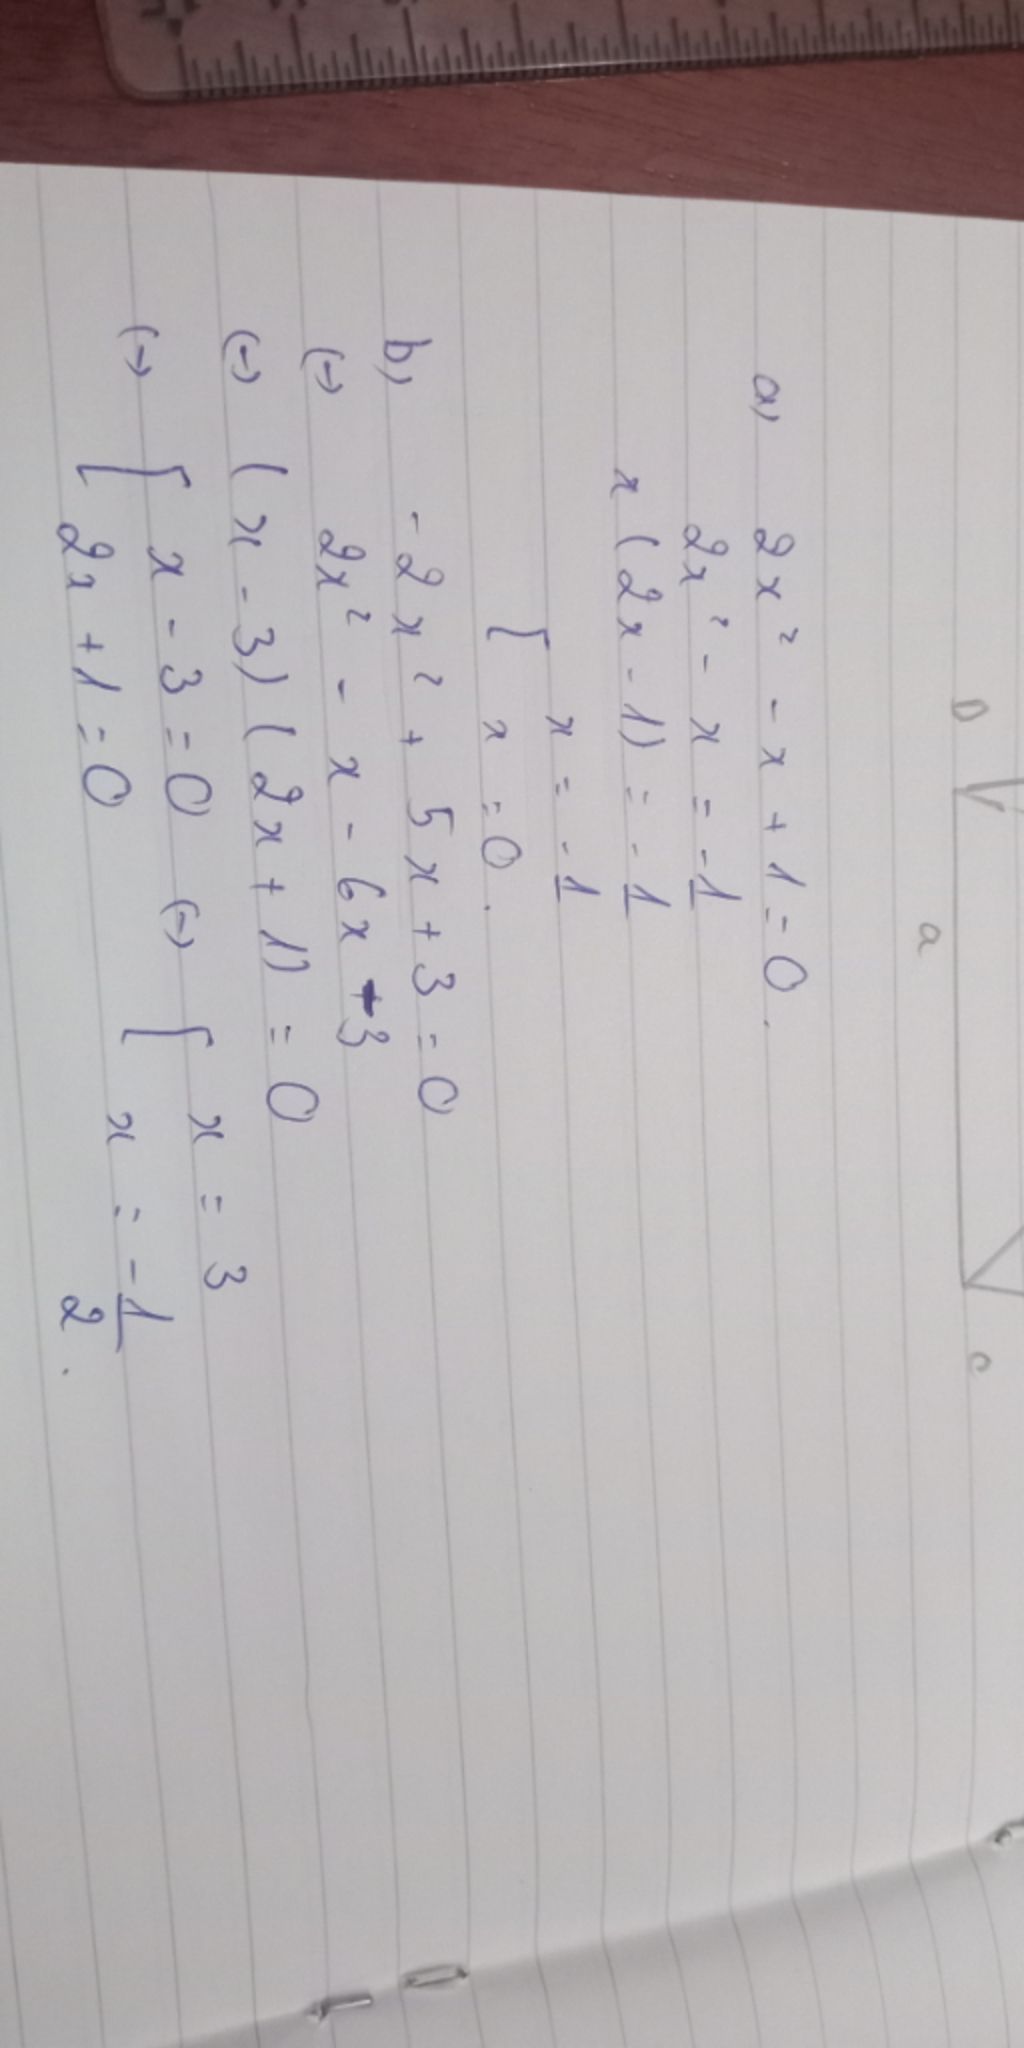 D a c
a) 2x² - x + 1 = 0.
2x² - x = -1
x (2x - 1) = -1
[ x = -1
x = 0.
b) -2x² + 5x + 3 = 0
(→) 2x² - x - 6x + 3
(→) (x - 3) (2x + 1) = 0
(→) [ x - 3 = 0 (→) [ x = 3
2x + 1 = 0 x = -1/2.